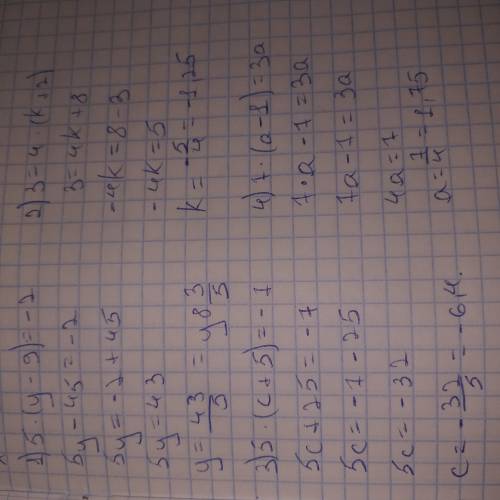 1) 5·(y-9)=-2
5y-45=-2
5y=-2+45
5y=43
y=43/5=y8 3/5
2) 3=4·(k+2)
3=4k+8
-4k=8-3
-4k=5
k=-5/4=-1,25
3) 5·(c+5)=-7
5c+25=-7
5c=-7-25
5c=-32
c=-32/5=-6,4.
4) 7·(a-1)=3a
7·a-7=3a
7a-7=3a
4a=7
a=7/4=1,75